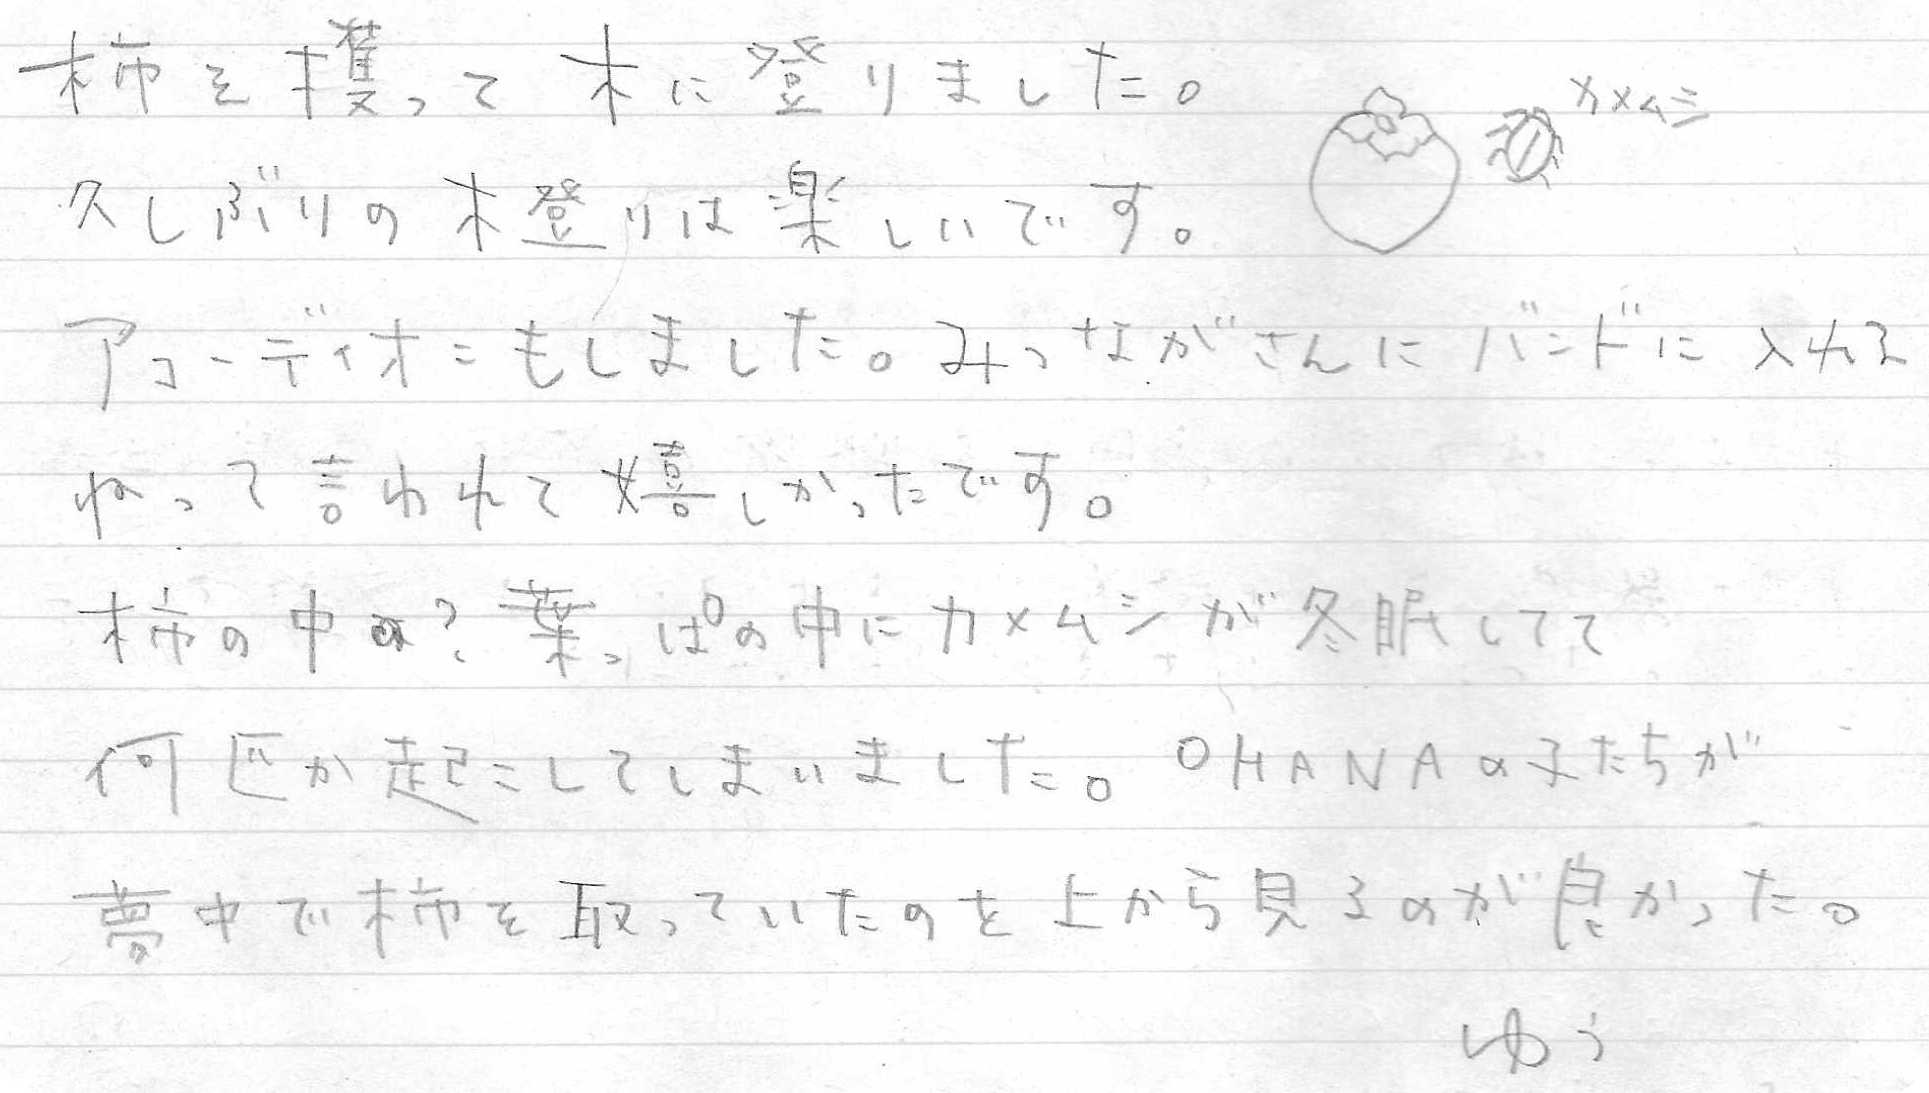 柿を穫って木に登りました。
カメムシ
久しぶりの木登りは楽しいです。
アコーディオニもしました。みつながさんにバンドに入れる
ねって言われて嬉しかったです。
柿の中の?葉っぱの中にカメムシが冬眠してて
何匹か起こしてしまいました。OHANAの子たちが
夢中で柿を取っていたのを上から見るのが良かった。
ゆう